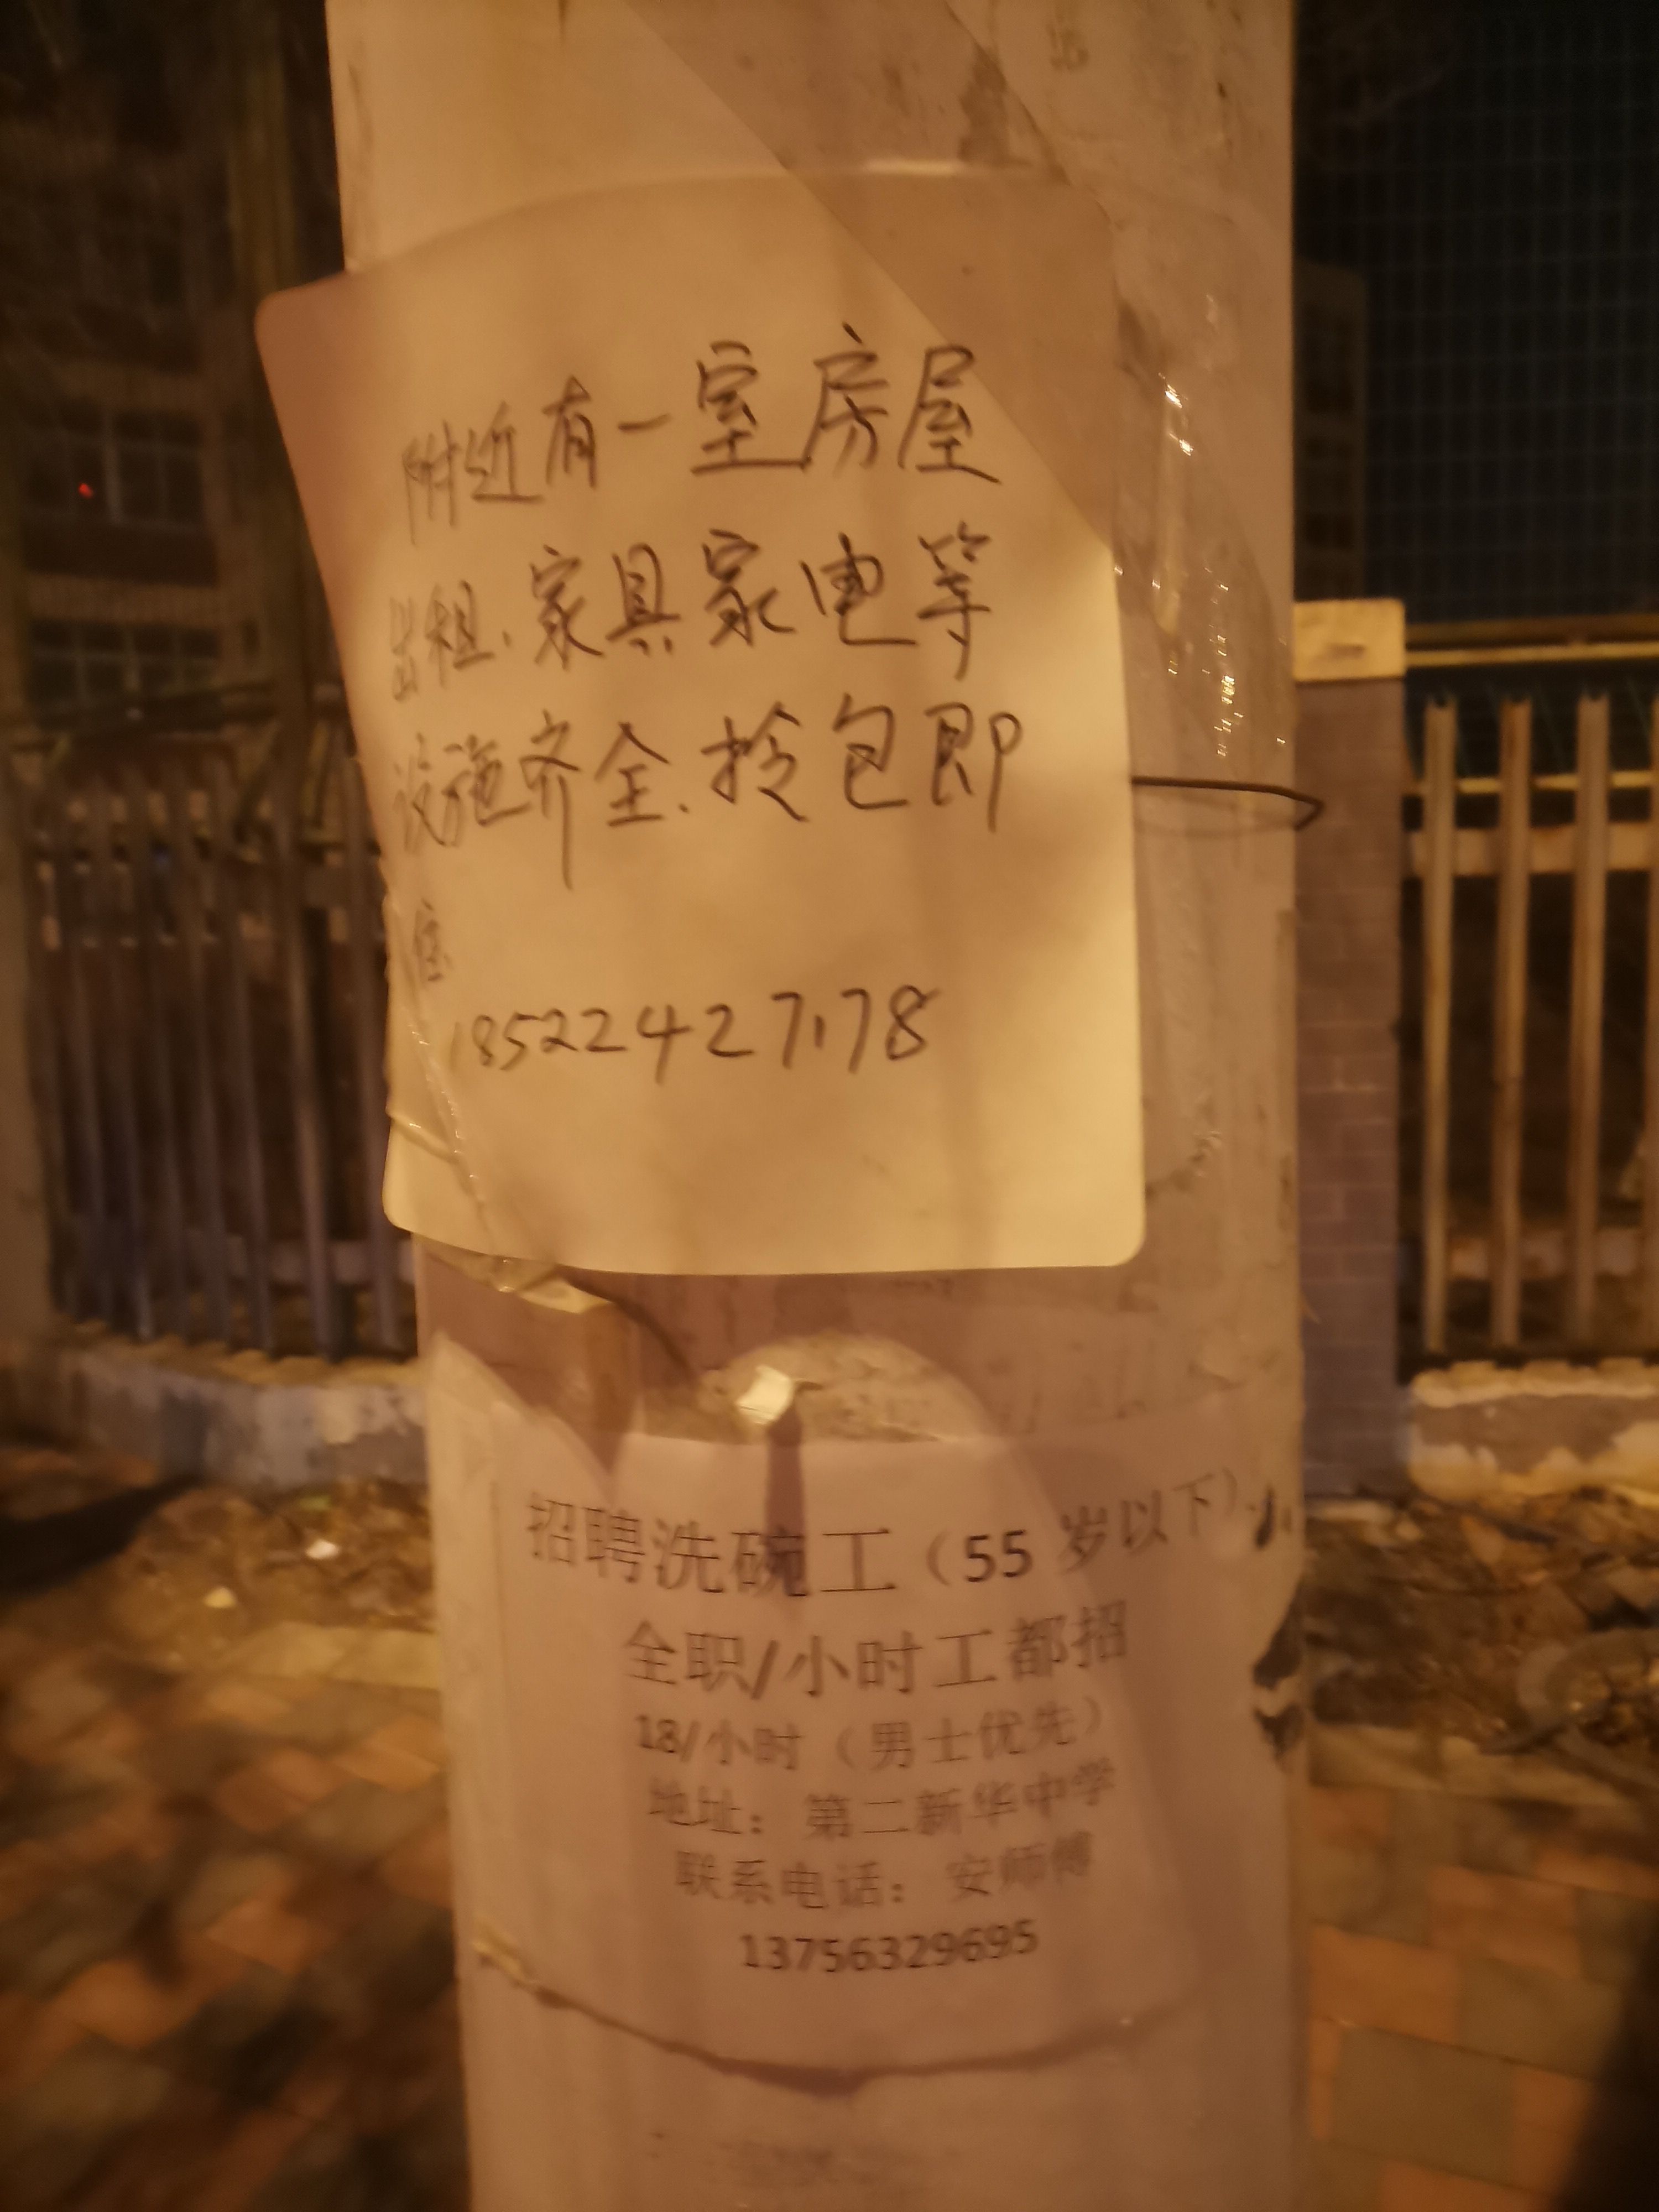 附近有一室房屋
出租.家具家电等
设施齐全.拎包即
住
18522427178
招聘洗碗工（55 岁以下）
全职/小时工都招
18/小时（男士优先）
地址：第二新华中学
联系电话：安师傅
13756329695